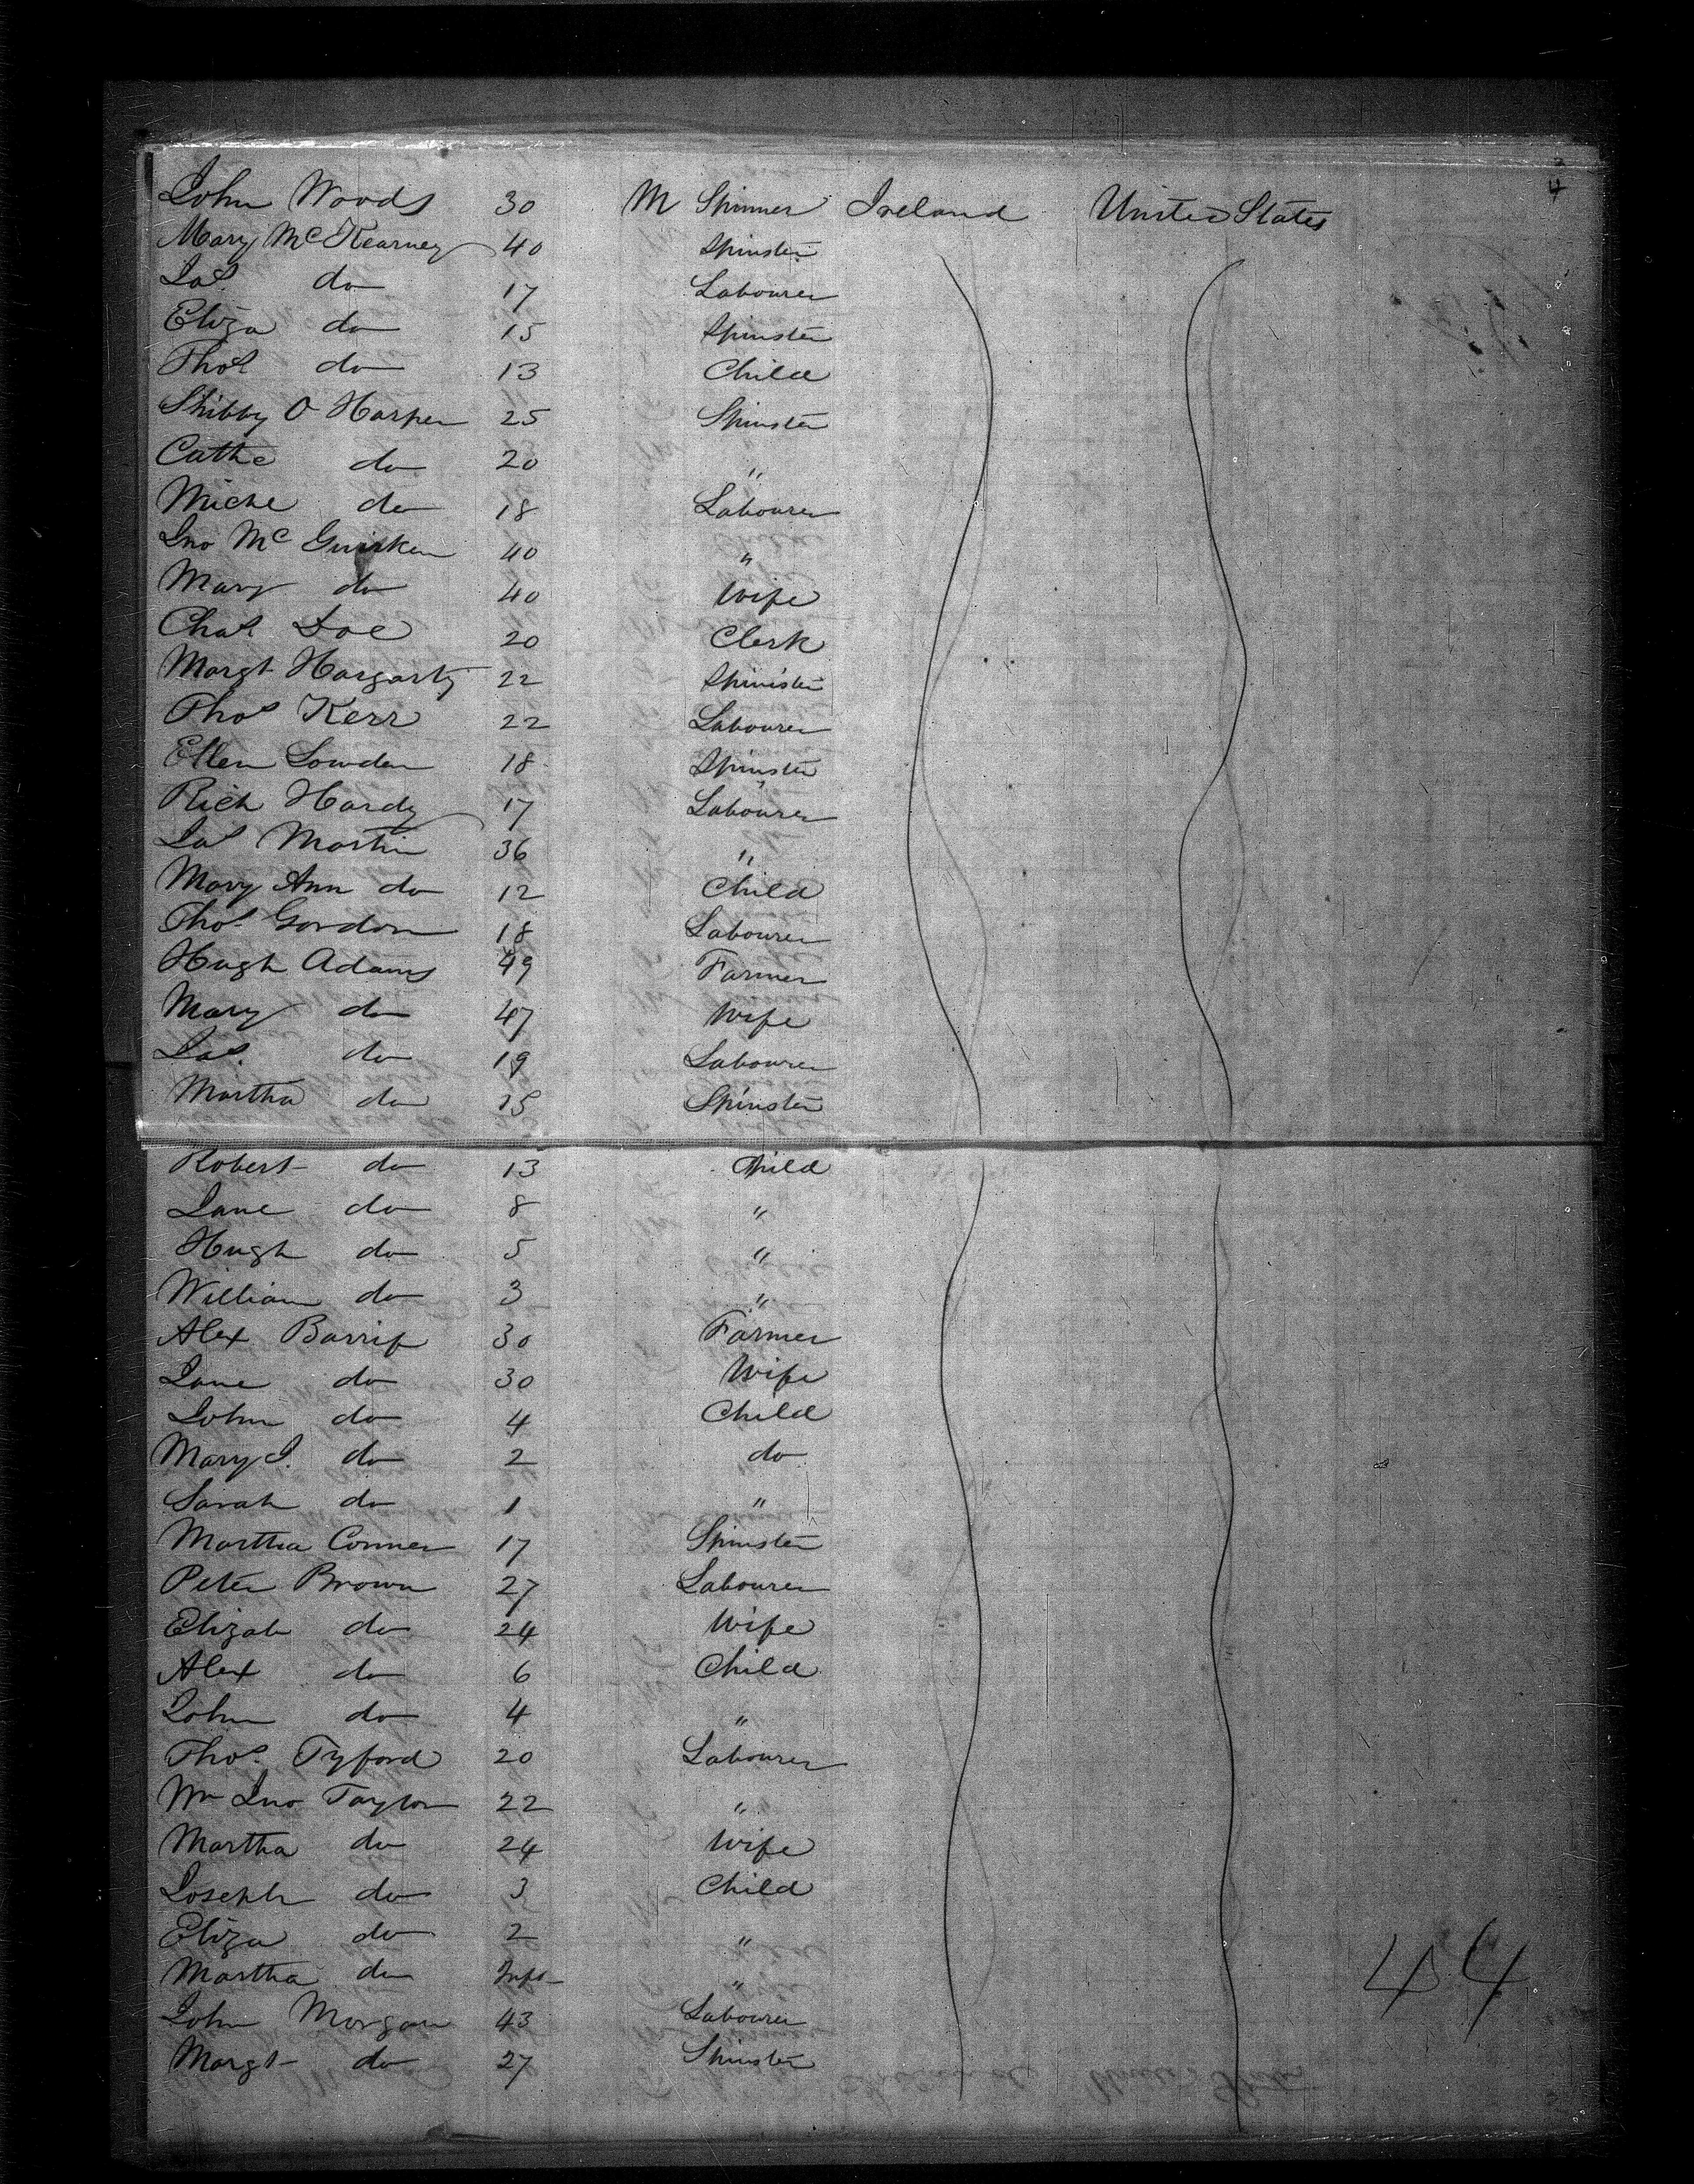 John Woods 30 M Spinner Ireland United States
Mary McKearney 40 Spinster
Jas do 17 Labourer
Eliza do 15 Spinster
Thos do 13 Child
Shibby O Harpen 25 Spinster
Cathe do 20 "
Miche do 18 Labourer
Jno McGuirken 40 "
Mary do 40 Wife
Chas Doe 20 Clerk
Margt Hargarty 22 Spinster
Thos Kerr 22 Labourer
Ellen Lowden 18 Spinster
Rich Hardy 17 Labourer
Jas Martin 36 "
Mary Ann do 12 Child
Thos Gordon 18 Labourer
Hugh Adams 49 Farmer
Mary do 47 Wife
Jas. do 19 Labourer
Martha do 15 Spinster
Robert do 13 Child
Jane do 8 "
Hugh do 5 "
William do 3 "
Alex Barrip 30 Farmer
Jane do 30 Wife
John do 4 Child
Mary J. do 2 do
Sarah do 1 "
Martha Conner 17 Spinster
Peter Brown 27 Labourer
Elizab do 24 Wife
Alex do 6 Child
John do 4 "
Thos. Tyford 20 Labourer
Wm Jno Taylor 22 "
Martha do 24 Wife
Joseph do 3 Child
Eliza do 2 "
Martha do Inft "
44
John Morgan 43 Labourer
Margt do 27 Spinster